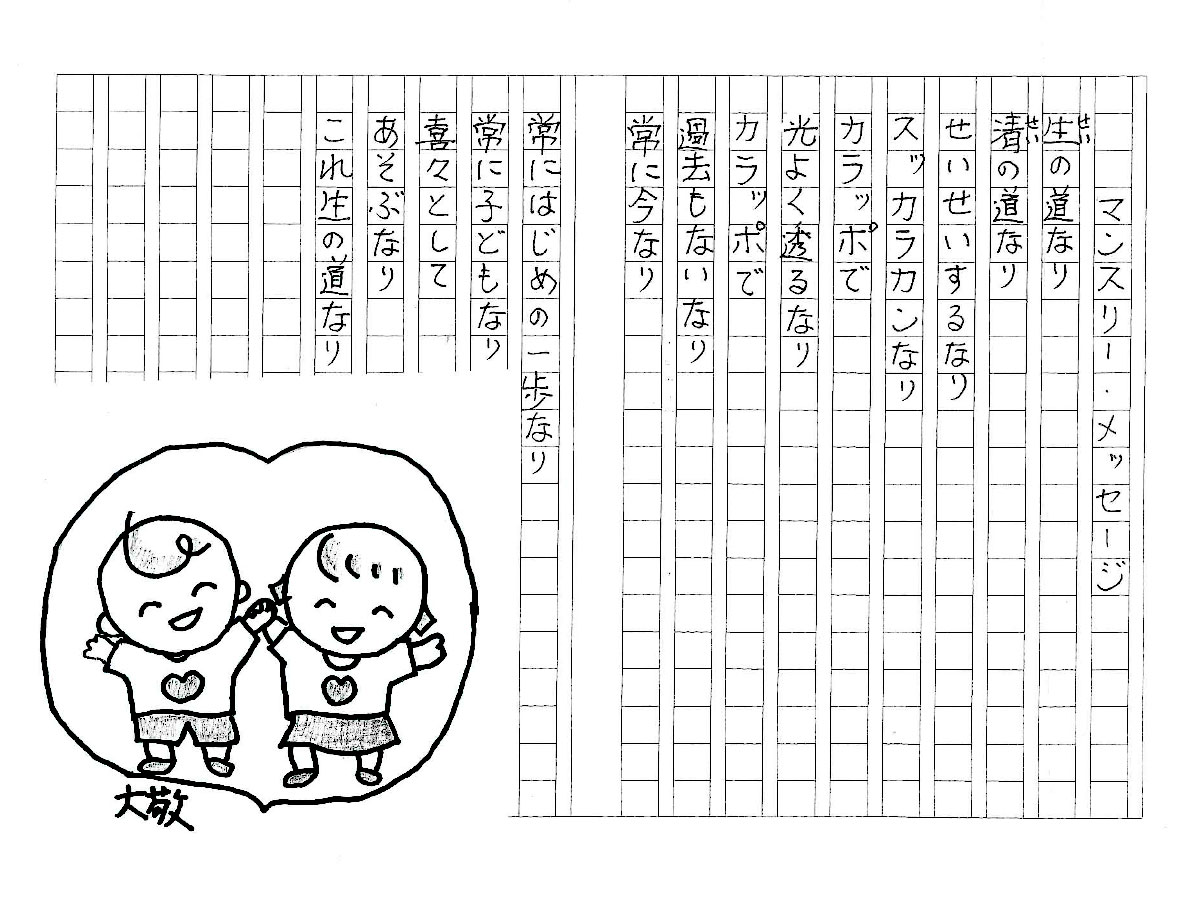 マンスリー・メッセージ
生の道なり
清の道なり
せいせいするなり
スッカラカンなり
カラッポで
光よく透るなり
カラッポで
過去もないなり
常に今なり
常にはじめの一歩なり
常に子どもなり
喜々として
あそぶなり
これ生の道なり
大敬